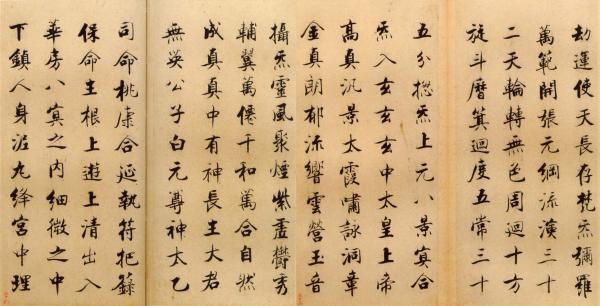 劫運使天長存梵炁彌羅
萬範開張元綱流演三十
二天輪轉無色周迴十方
旋斗曆箕迴度五常三十
五分揔炁上元八景冥合
炁入玄玄玄中太皇上帝
高真汎景太霞嘯詠洞章
金真朗郁流響雲營玉音
攝炁靈風聚煙紫虛鬱秀
輔翼萬僊千和萬合自然
成真真中有神長生大君
無英公子白元尊神太乙
司命桃康合延執符把籙
保命生根上遊上清出入
華房八冥之內細微之中
下鎮人身泥丸絳宮中理